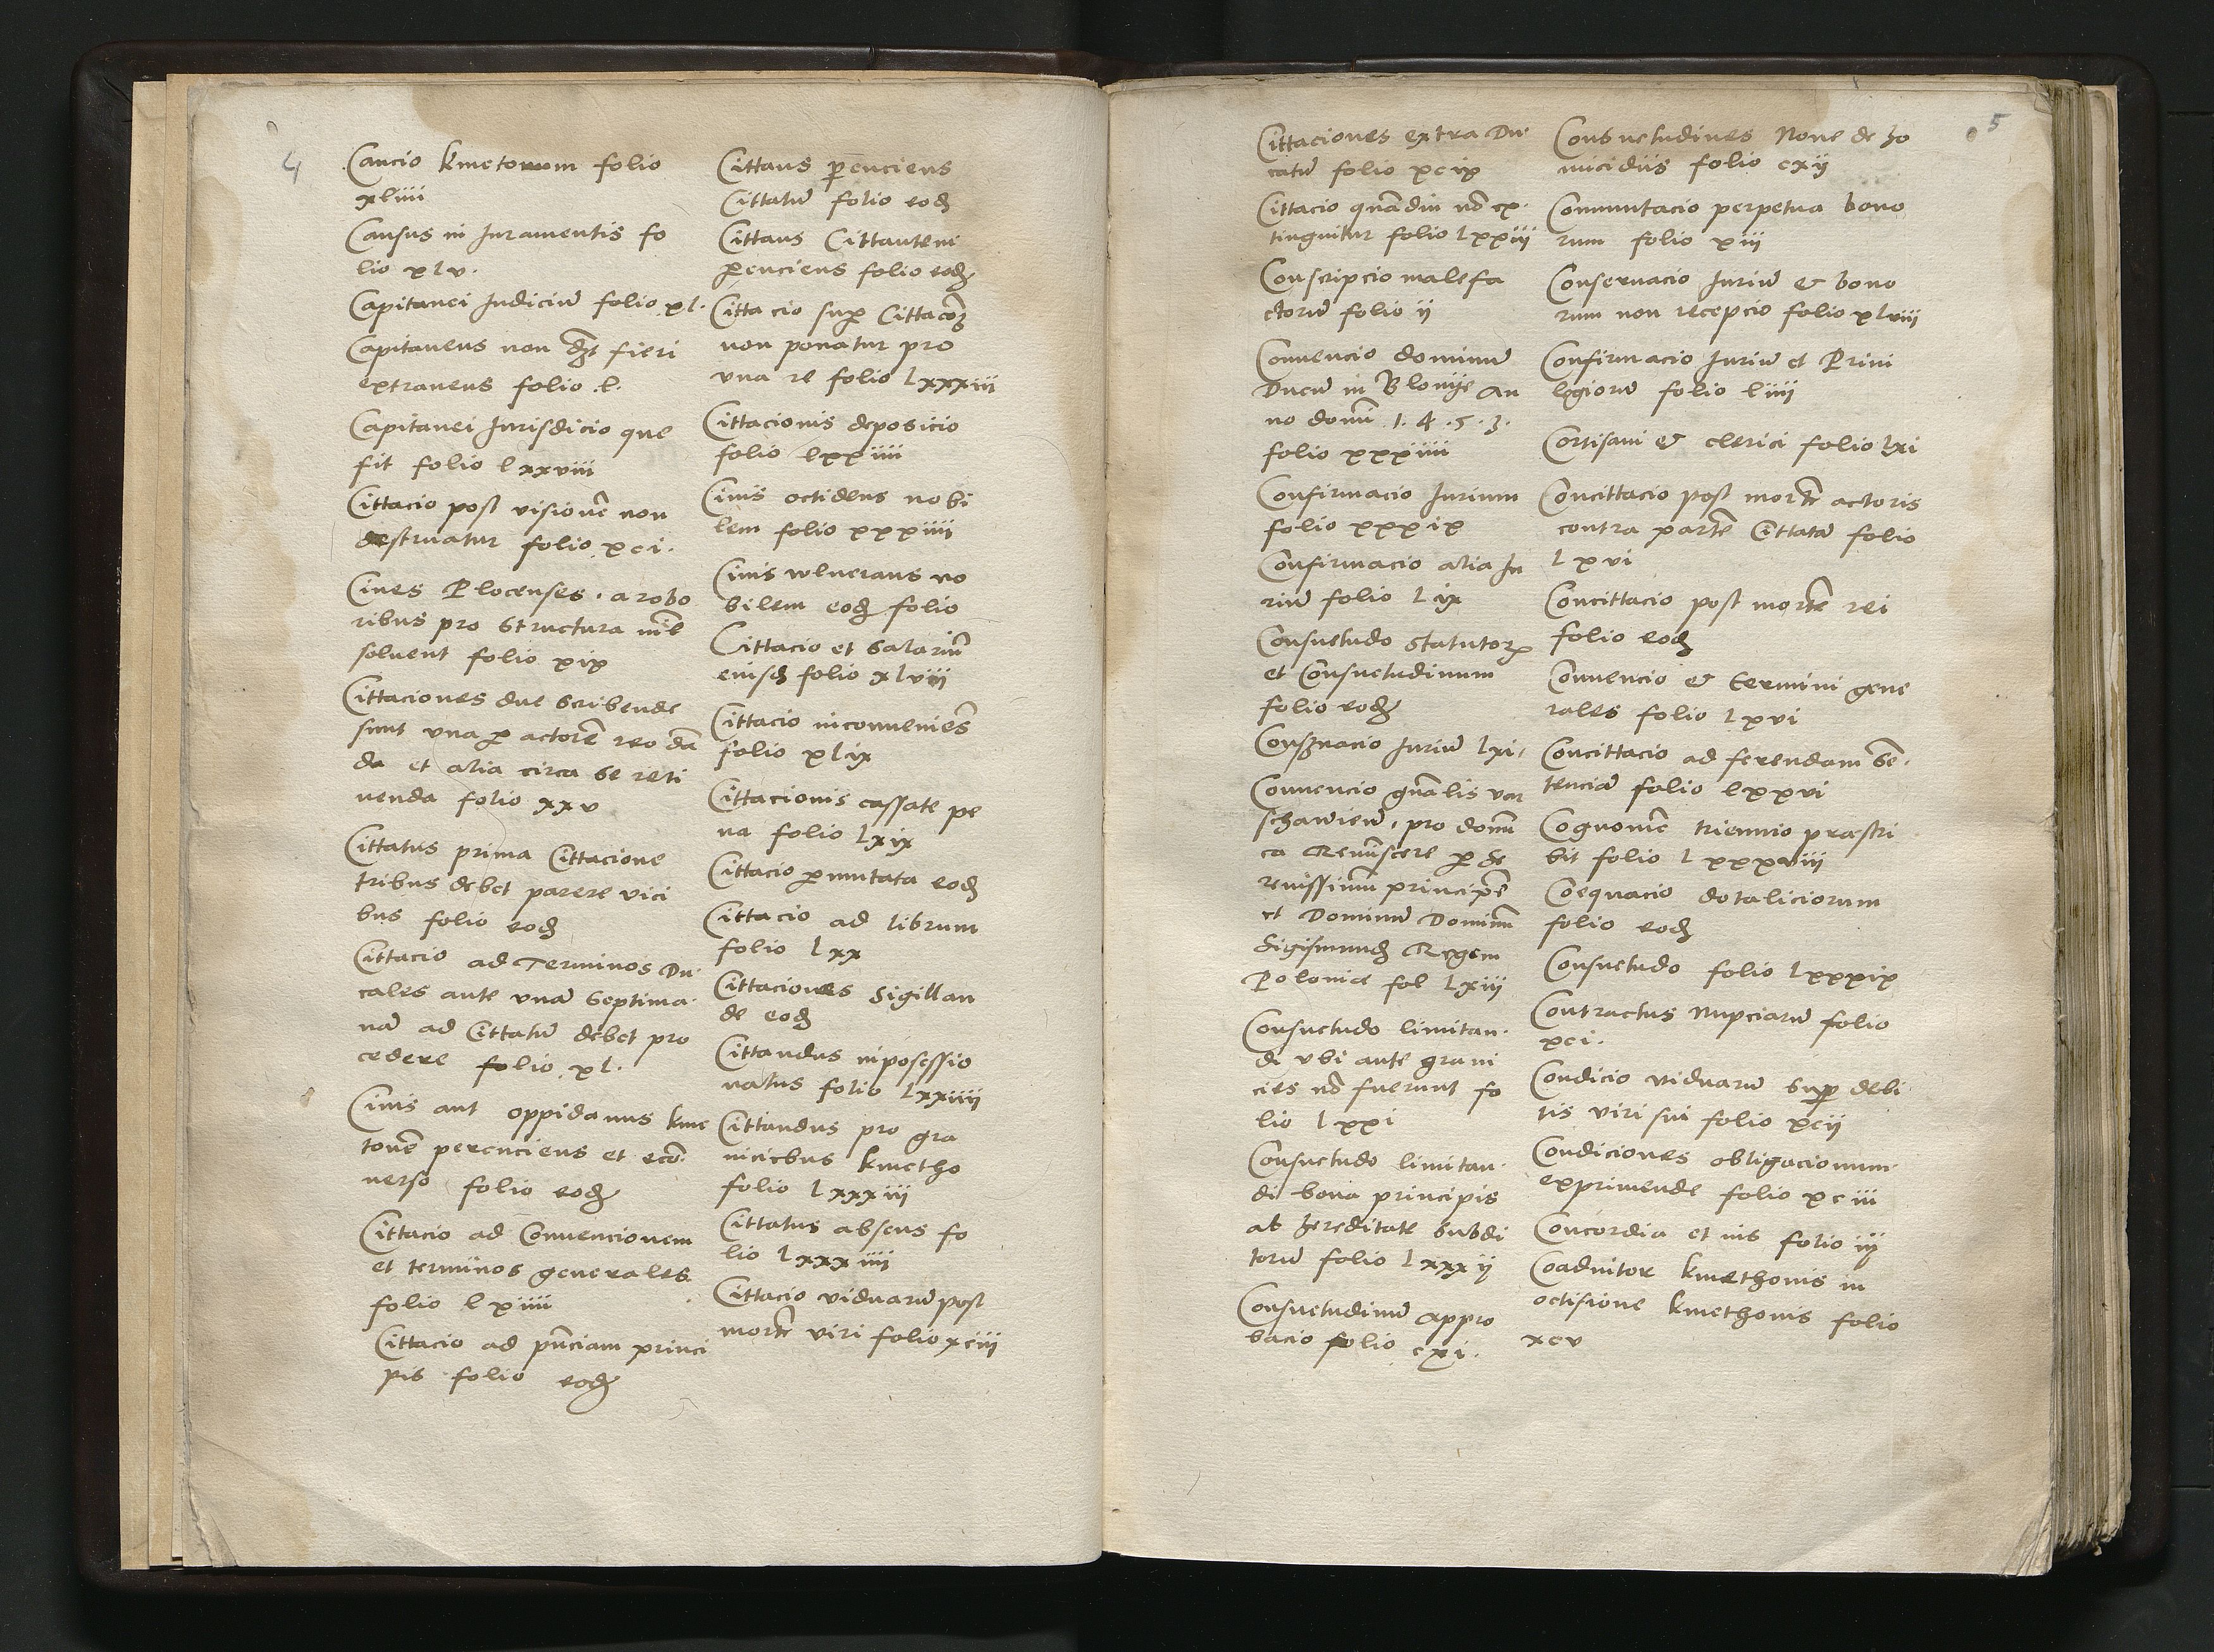 4
Caucio kmetonum folio
xliiii
Causus in Juramentis fo
lio xlv.
Capitanei Judiciũ folio xl.
Capitaneus non dƺt fieri
extraneus folio .l.
Capitanei Jurisdicio que
fit folio lxxviii
Cittacio post visionẽ non
destruatur folio xci.
Ciues Plocenses . a robo
ribus pro structura nihil
soluent folio xix
Cittaciones due scribende
sunt vna ꝑ actorẽ reo dã
da et alia circa se reti
nenda folio xxv
Cittatus prima Cittacione
tribus debet parere vici
bus folio eodƺ
Cittacio ad Terminos Du
cales ante vnã septima
nã ad Cittatũ debet pro
cedere folio xl.
Ciuis aut oppidanus kme
tonẽ percuciens et ecõ
uerso folio eodƺ
Cittacio ad Conuencionem
et terminos generales
folio lxiiii
Cittacio ad pñciam princi
pis folio eodƺ
Cittans ꝑcuciens
Cittatũ folio eodƺ
Cittans Cittantem
ꝑcuciens folio eodƺ
Cittacio suꝑ Cittacõƺ
non ponatur pro
vna re folio lxxxiii
Cittacionis deposicio
folio lxxiiii
Ciuis octidens nobi
lem folio xxxiiii
Ciuis wlnerans no
bilem eodƺ folio
Cittacio et salariũ
eiusdƺ folio xlviii
Cittacio inconueniẽs
folio xlix
Cittacionis cassate pe
na folio lxix
Cittacio ꝑmutata eodƺ
Cittacio ad librum
folio lxx
Cittaciones sigillan
de eodƺ
Cittandus inposessio
natus folio lxxiiii
Cittandus pro gra
niciebus kmetho
folio lxxxiii
Cittatus absens fo
lio lxxxiiii
Cittacio viduarũ post
mortẽ viri folio xciii
5
Cittaciones extra Du
catũ folio xcix
Cittacio quãdiu nõ ex
tinguitur folio lxxiii
Conscripcio malefa
ctorũ folio ii
Conuencio dominũ
Ducũ in Blonije an
no domĩ 1.4.5.3.
folio xxxiiii
Confirmacio Jurium
folio xxxix
Confirmacio alia Ju
riũ folio lix
Consuetudo statutorꝝ
et Consuetudinum
folio eodƺ
Consƺuacio Juriũ lxi.
Conuencio gñalis var
schawieñ. pro domĩ
ca Reminiscere ꝑ Se
renissimũ principẽ
et Dominũ Dominũ
Sigismundƺ Regem
Polonie fol lxiii
Consuetudo limitan
di vbi ante grani
cies nõ fuerunt fo
lio lxxi
Consuetudo limitan
di bona principis
ab hereditate subdi
torũ folio lxxxij
Consuetudinũ appro
bacio folio cxi.
Consuetudines None de ho
micidiis folio cxij
Commutacio perpetua bono
rum folio xiii
Conseruacio Juriũ & bono
rum non recepcio folio xlviii
Confirmacio Juriũ et Priui
legiorũ folio liiii
Cortisani & clerici folio lxi
Concittacio post mortẽ actoris
contra partẽ Cittatã folio
lxvi
Concittacio post mortẽ rei
folio eodƺ
Conuencio & termini gene
rales folio lxvi
Concittacio ad ferendam sẽ
tenciã folio lxxvi
Cognomẽ triennio prescri
bit folio lxxxviii
Coequacio dotaliciorum
folio eodƺ
Consuetudo folio lxxxix
Contractus Nupciarũ folio
xci.
Condicio viduarũ suꝑ debi
tis viri sui folio xcij
Condiciones obligacionum
exprimende folio xciii
Concordia et ius folio iij
Coadiutor kmethonis in
octisione kmethonis folio
xcv